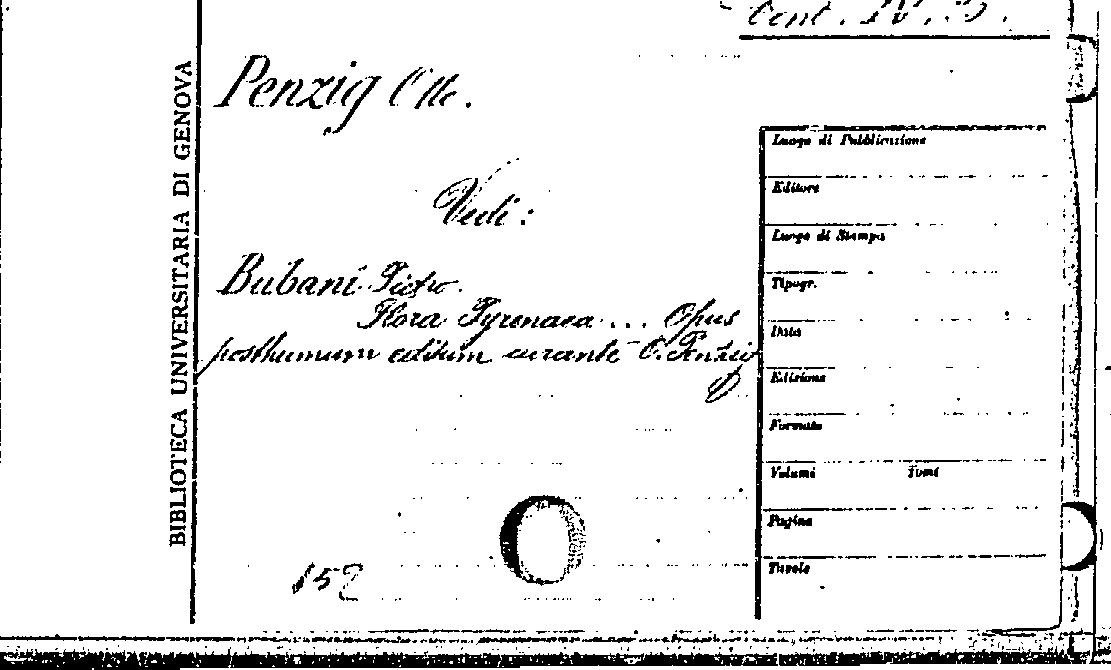 Cont. IV. 5.
Penzig Otto.
Vedi:
Bubani Pietro.
Flora Pyrenaea ... Opus
posthumum editum curante O. Penzig
152
BIBLIOTECA UNIVERSITARIA DI GENOVA
Luogo di Pubblicazione
Editore
Luogo di Stampa
Tipogr.
Data
Edizione
Formato
Volumi Tomi
Pagine
Tavole